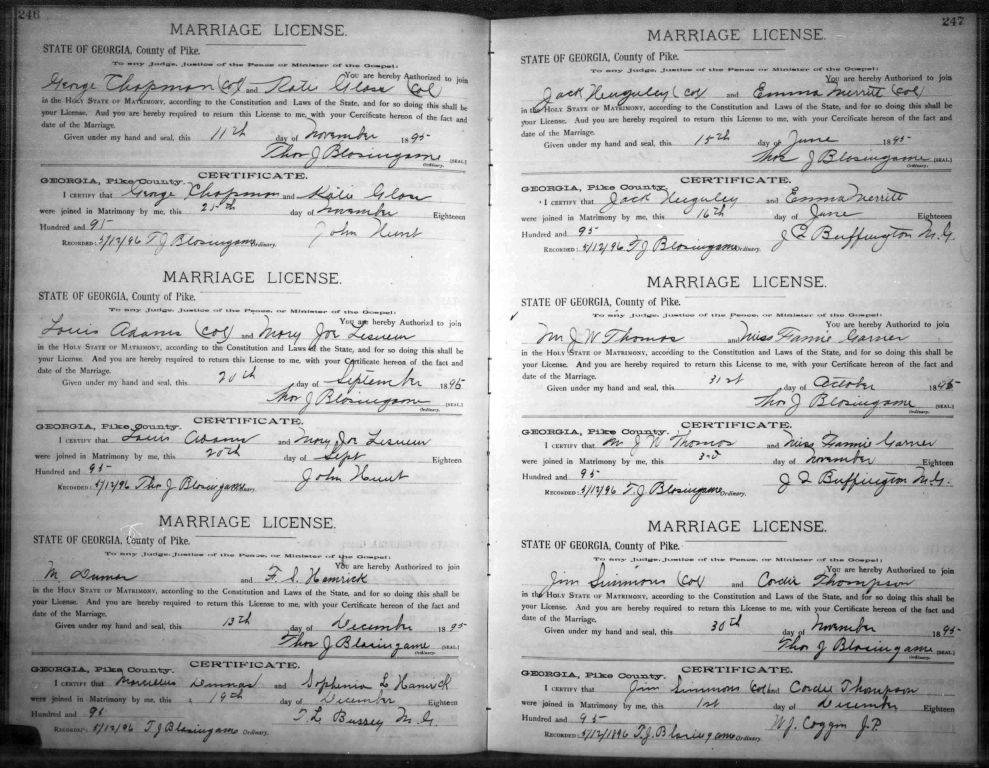 246
MARRIAGE LICENSE.
STATE OF GEORGIA, County of Pike.
To any Judge, Justice of the Peace or Minister of the Gospel:
You are hereby Authorized to join
George Chapman (Col) and Katie Glose (Col)
in the HOLY STATE OF MATRIMONY, according to the Constitution and Laws of the State, and for so doing this shall be
your License. And you are hereby required to return this License to me, with your Certificate hereon of the fact and
date of the Marriage.
Given under my hand and seal, this 11th day of November 1895
Thos J Blasingame (SEAL.)
Ordinary.
CERTIFICATE.
GEORGIA, Pike County.
I CERTIFY that George Chapman and Katie Glose
were joined in Matrimony by me, this 25th day of November Eighteen
Hundred and 95 John Hunt
RECORDED: 5/12/96 T. J Blasingame Ordinary.
MARRIAGE LICENSE.
STATE OF GEORGIA, County of Pike.
To any Judge, Justice of the Peace, or Minister of the Gospel:
You are hereby Authorized to join
Louis Adams (Col) and Mary Joe Lesueur
in the HOLY STATE OF MATRIMONY, according to the Constitution and Laws of the State, and for so doing this shall be
your License. And you are hereby required to return this License to me, with your Certificate hereon of the fact and
date of the Marriage.
Given under my hand and seal, this 20th day of September 1895
Thos J Blasingame (SEAL.)
Ordinary.
CERTIFICATE.
GEORGIA, Pike County.
I CERTIFY that Louis Adams and Mary Joe Lesueur
were joined in Matrimony by me, this 20th day of Sept Eighteen
Hundred and 95 John Hunt
RECORDED: 5/12/96 Thos J Blasingame Ordinary.
MARRIAGE LICENSE.
STATE OF GEORGIA, County of Pike.
To any Judge, Justice of the Peace, or Minister of the Gospel:
You are hereby Authorized to join
M. and F. S. Hamrick
in the HOLY STATE OF MATRIMONY, according to the Constitution and Laws of the State, and for so doing this shall be
your License. And you are hereby required to return this License to me, with your Certificate hereon of the fact and
date of the Marriage.
Given under my hand and seal, this 13th day of December 1895
Thos J Blasingame (SEAL.)
Ordinary.
CERTIFICATE.
GEORGIA, Pike County.
I CERTIFY that and Sophenia L Hamrick
were joined in Matrimony by me, this 19th day of December Eighteen
Hundred and 95 T. L Bussey M. G.
RECORDED: 5/12/96 T J Blasingame Ordinary.
247
MARRIAGE LICENSE.
STATE OF GEORGIA, County of Pike.
To any Judge, Justice of the Peace or Minister of the Gospel:
You are hereby Authorized to join
Jack Huguley (Col) and Emma Merritt (Col)
in the HOLY STATE OF MATRIMONY, according to the Constitution and Laws of the State, and for so doing this shall be
your License. And you are hereby required to return this License to me, with your Certificate hereon of the fact and
date of the Marriage.
Given under my hand and seal, this 15th day of June 1895
Thos J Blasingame (SEAL.)
Ordinary.
CERTIFICATE.
GEORGIA, Pike County.
I CERTIFY that Jack Huguley and Emma Merritt
were joined in Matrimony by me, this 16th day of June Eighteen
Hundred and 95 J Q Buffington M. G.
RECORDED: 5/12/96 T. J Blasingame Ordinary.
MARRIAGE LICENSE.
STATE OF GEORGIA, County of Pike.
To any Judge, Justice of the Peace, or Minister of the Gospel:
You are hereby Authorized to join
Mr J. W Thomas and Miss Fannie Garner
in the HOLY STATE OF MATRIMONY, according to the Constitution and Laws of the State, and for so doing this shall be
your License. And you are hereby required to return this License to me, with your Certificate hereon of the fact and
date of the Marriage.
Given under my hand and seal, this 31st day of October 1895
Thos J Blasingame (SEAL.)
Ordinary.
CERTIFICATE.
GEORGIA, Pike County.
I CERTIFY that Mr J W Thomas and Miss Fannie Garner
were joined in Matrimony by me, this 3rd day of November Eighteen
Hundred and 95 J Q Buffington M. G.
RECORDED: 5/12/96 T. J Blasingame Ordinary.
MARRIAGE LICENSE.
STATE OF GEORGIA, County of Pike.
To any Judge, Justice of the Peace, or Minister of the Gospel:
You are hereby Authorized to join
Jim Simmons (Col) and Cordie Thompson
in the HOLY STATE OF MATRIMONY, according to the Constitution and Laws of the State, and for so doing this shall be
your License. And you are hereby required to return this License to me, with your Certificate hereon of the fact and
date of the Marriage.
Given under my hand and seal, this 30th day of November 1895
Thos J Blasingame (SEAL.)
Ordinary.
CERTIFICATE.
GEORGIA, Pike County.
I CERTIFY that Jim Simmons (Col) and Cordie Thompson
were joined in Matrimony by me, this 1st day of December Eighteen
Hundred and 95 W. J. Coggin J. P.
RECORDED: 5/12/1896 T. J Blasingame Ordinary.